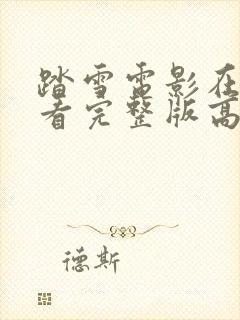 踏雪雷影在
看完整版高
德斯